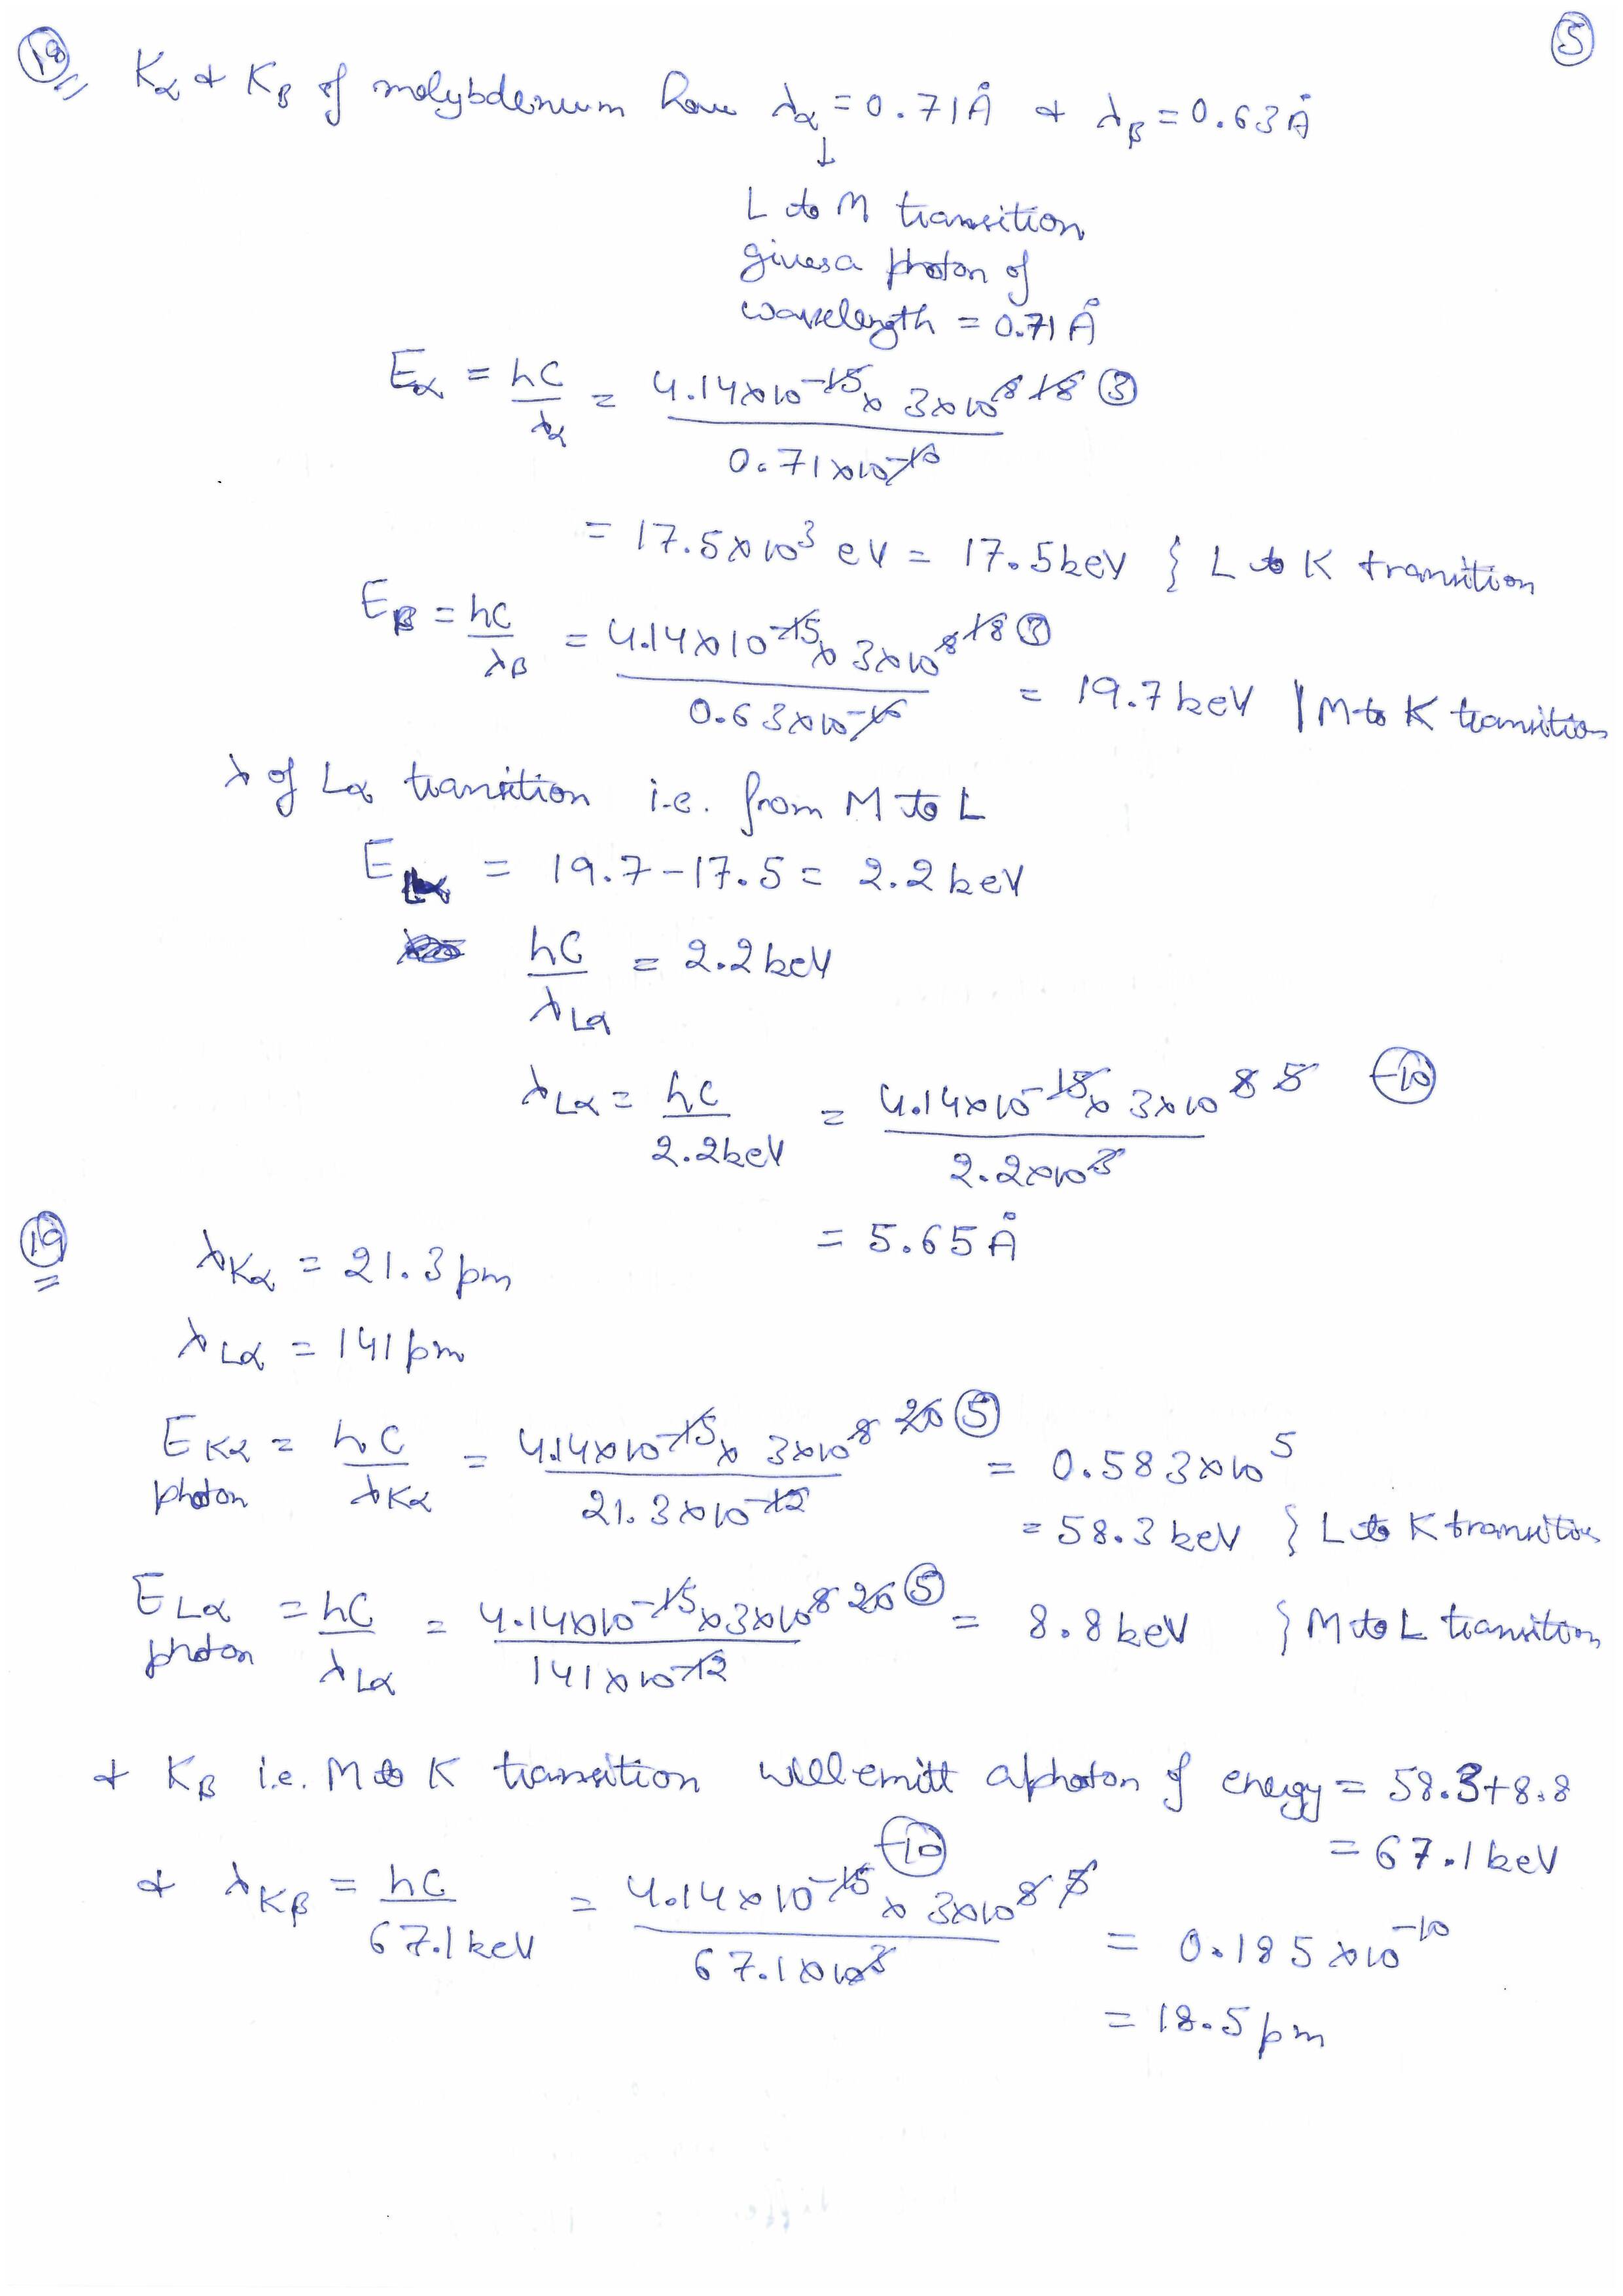 5
18 Kα & Kβ of molybdenum have λα = 0.71Å & λβ = 0.63Å
↓
L to M transition
gives a photon of
wavelength = 0.71 Å
Eα = hC/λα = 4.14×10^-15 × 3×10^8 18 ③ / 0.71×10^-10
= 17.5×10^3 eV = 17.5keV { L to K transition
Eβ = hC/λβ = 4.14×10^-15 × 3×10^8 18 ③ / 0.63×10^-10 = 19.7keV | M to K transition
λ of Lα transition i.e. from M to L
E Lα = 19.7-17.5 = 2.2keV
hC/λLα = 2.2keV
λLα = hC/2.2keV = 4.14×10^-15 × 3×10^8 5 / 2.2×10^3 -10
= 5.65Å
19 λKα = 21.3pm
λLα = 141pm
EKα photon = hC/λKα = 4.14×10^-15 × 3×10^8 20 ⑤ / 21.3×10^-12 = 0.583×10^5
= 58.3keV } L to K transition
ELα photon = hC/λLα = 4.14×10^-15 × 3×10^8 20 ⑤ / 141×10^-12 = 8.8keV } M to L transition
& Kβ i.e. M to K transition will emitt a photon of energy = 58.3+8.8
= 67.1keV
& λKβ = hC/67.1keV = 4.14×10^-15 × 3×10^8 5 / 67.1×10^3 -10 = 0.185×10^-10
= 18.5pm